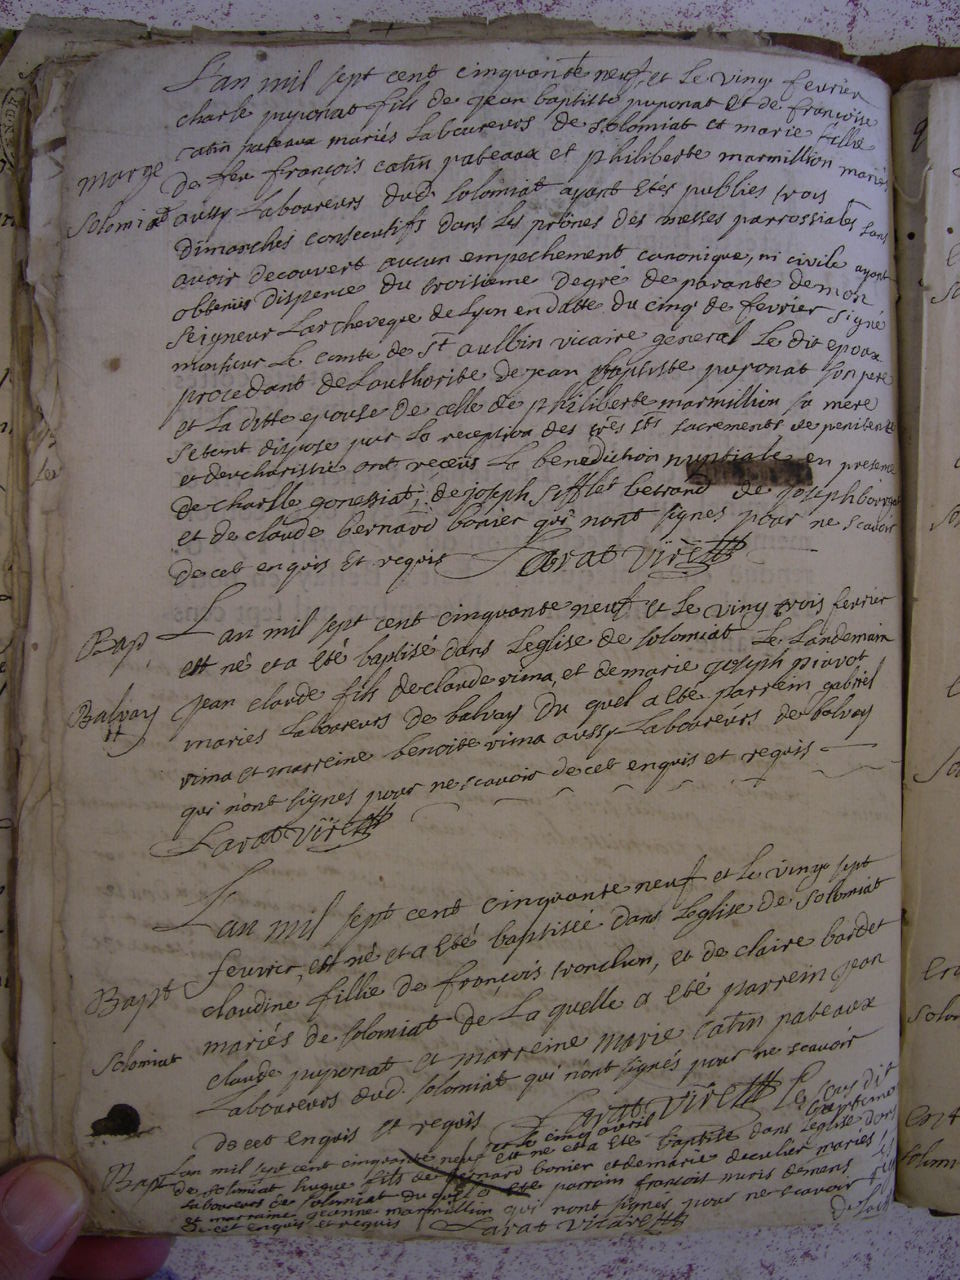 L'an mil sept cent cinquante neuf et le vingt fevrier
charle puponat fils de jean baptiste puponat et de francoise
catin pateaux mariés Laboureurs de Solomiat et marie fillie
marge
de feu francois catin pateaux et philiberte marmillion mariés
Solomiat
aussy Laboureurs dud. Solomiat ayant étés publies trois
dimanches consecutifs dans les prônes des messes parrossiales sans
avoir decouvert aucun empechement canonique, ni civile ayant
obtenus dispence du troisieme degré de parante de mon
seigneur Larcheveque de Lyon en datte du cinq de fevrier signé
monsieur Le comte de St aulbin vicaire general Le dit epoux
procedant de Lauthorité de jean baptiste puponat son pere
et La ditte epouse de celle de philiberte marmillion sa mere
setant dispose par La reception des très sts sacrements de penitence
et deucharistie ont receus La benediction nuptiale en presence
de charlle gonessiat, de joseph sifflet betrand de joseph
et de claude bernard bonier qui nont signes pour ne scavoir
de cet enquis et requis Larat Vire
Bap
L'an mil sept cent cinquante neuf et le vingt trois fevrier
est né et a été baptisé dans Leglise de solomiat Le Landemain
Balvay
jean claude fils de claude vima, et de marie joseph pivot
mariés Laboureurs de balvay du quel a été parrein gabriel
vima et marreine benoite vima aussy Laboureurs de balvay
qui n'ont signes pour ne scavoir de cet enquis et requis
Larat Vire
L'an mil sept cent cinquante neuf et le vingt sept
fevrier, est né et a été baptisée dans Leglise de Solomiat
Bapt
claudine fillie de françois tronclun, et de claire bardet
mariés de solomiat de La quelle a été parrein jean
Solomiat
claude puponat et marreine marie catin pateaux
Laboureurs dud. solomiat qui n'ont signés pour ne scavoir
de cet enquis et requis Larat Vire
et le cinq avril
Bapt
L'an mil sept cent cinquante neuf est né et a été baptisé dans Leglise
de solomiat hugue fils de bernard bonier et de marie deculier mariés
Laboureurs de solomiat du quel a été parrain françois muris
et marraine jeanne marmillion qui nont signés pour ne scavoir
de cet enquis et requis Larat Vicare